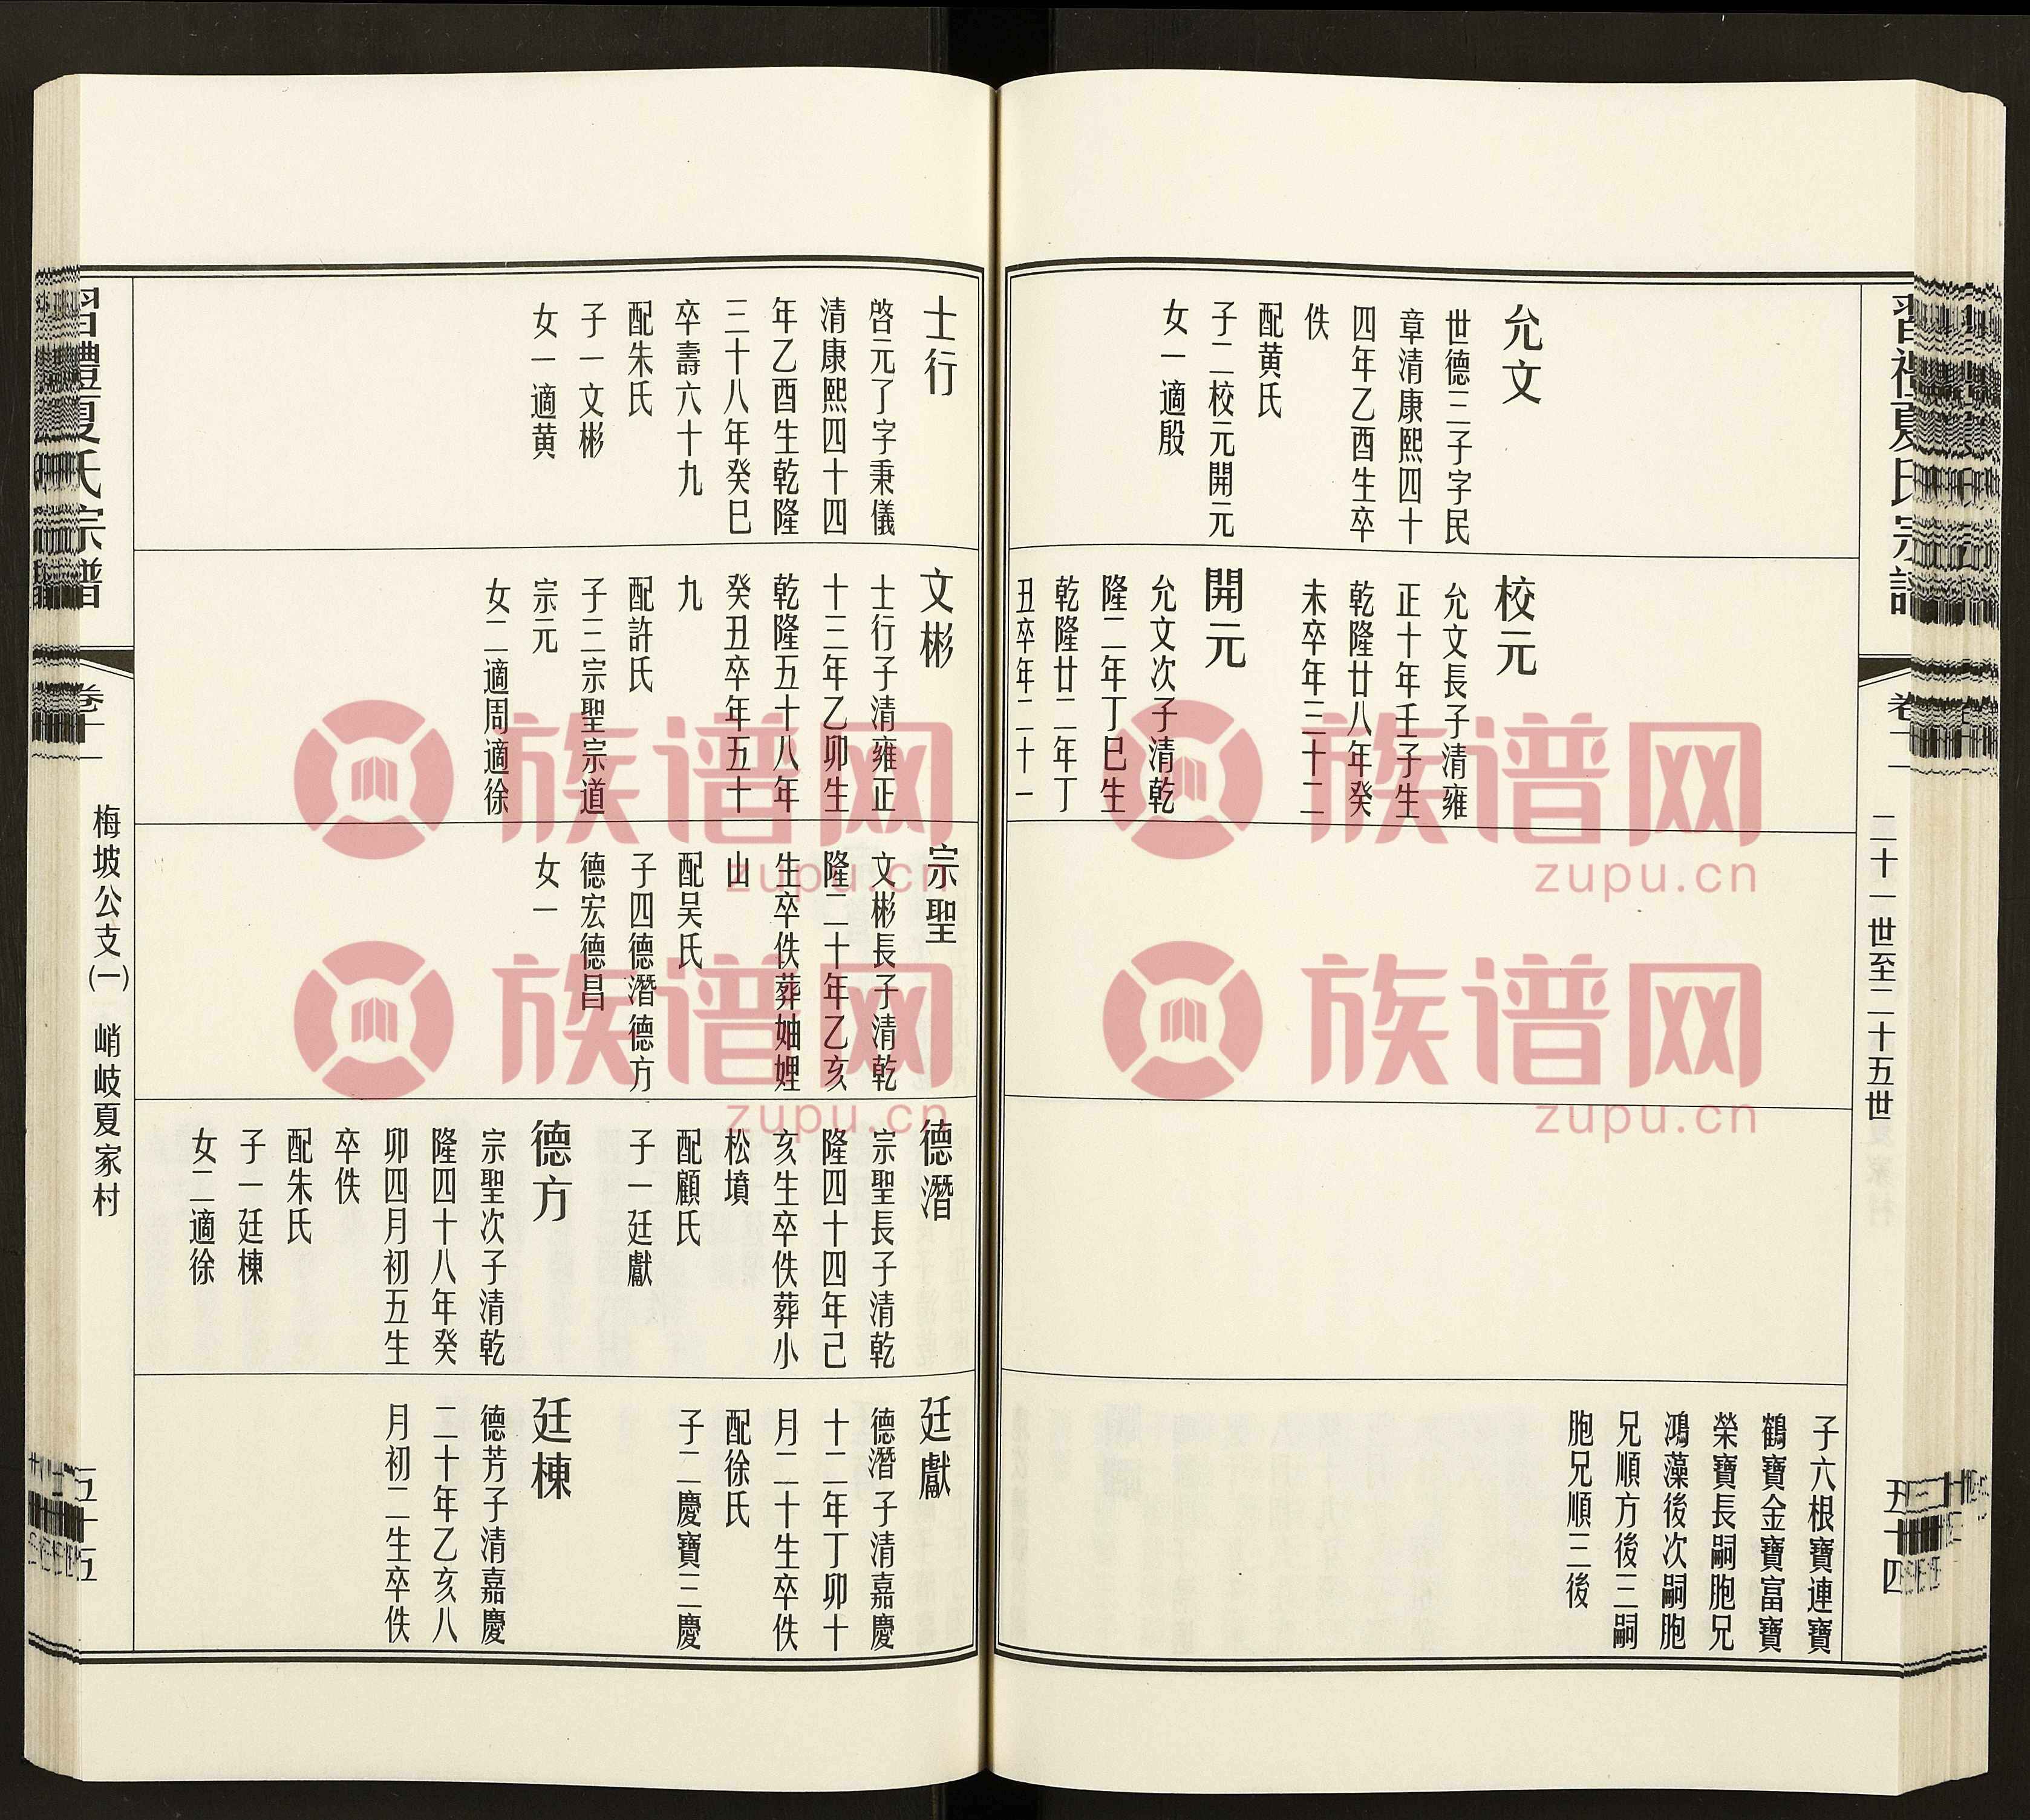 習禮夏氏宗譜
卷十一
二十一世至二十五世
五十四
允文
世德三子字民
章清康熙四十
四年乙酉生卒
佚
配黄氏
子二校元開元
女一適殷
校元
允文長子清雍
正十年壬子生
乾隆廿八年癸
未卒年三十二
開元
允文次子清乾
隆二年丁巳生
乾隆廿二年丁
丑卒年二十一
子六根寶連寶
鶴寶金寶富寶
榮寶長嗣胞兄
鴻藻後次嗣胞
兄順方後三嗣
胞兄順三後
士行
啓元了字秉儀
清康熙四十四
年乙酉生乾隆
三十八年癸巳
卒壽六十九
配朱氏
子一文彬
女一適黄
文彬
士行子清雍正
十三年乙卯生
乾隆五十八年
癸丑卒年五十
九
配許氏
子三宗聖宗道
宗元
女二適周適徐
宗聖
文彬長子清乾
隆二十年乙亥
生卒佚葬妯娌
山
配吴氏
子四德潛德方
德宏德昌
女一
德潛
宗聖長子清乾
隆四十四年己
亥生卒佚葬小
松墳
配顧氏
子一廷獻
德方
宗聖次子清乾
隆四十八年癸
卯四月初五生
卒佚
配朱氏
子一廷棟
女二適徐
廷獻
德潛子清嘉慶
十二年丁卯十
月二十生卒佚
配徐氏
子二慶寶三慶
廷棟
德芳子清嘉慶
二十年乙亥八
月初二生卒佚
習禮夏氏宗譜
卷十一
梅坡公支(一) 峭岐夏家村
五十五
族谱网
zupu.cn
族谱网
zupu.cn
族谱网
zupu.cn
族谱网
zupu.cn